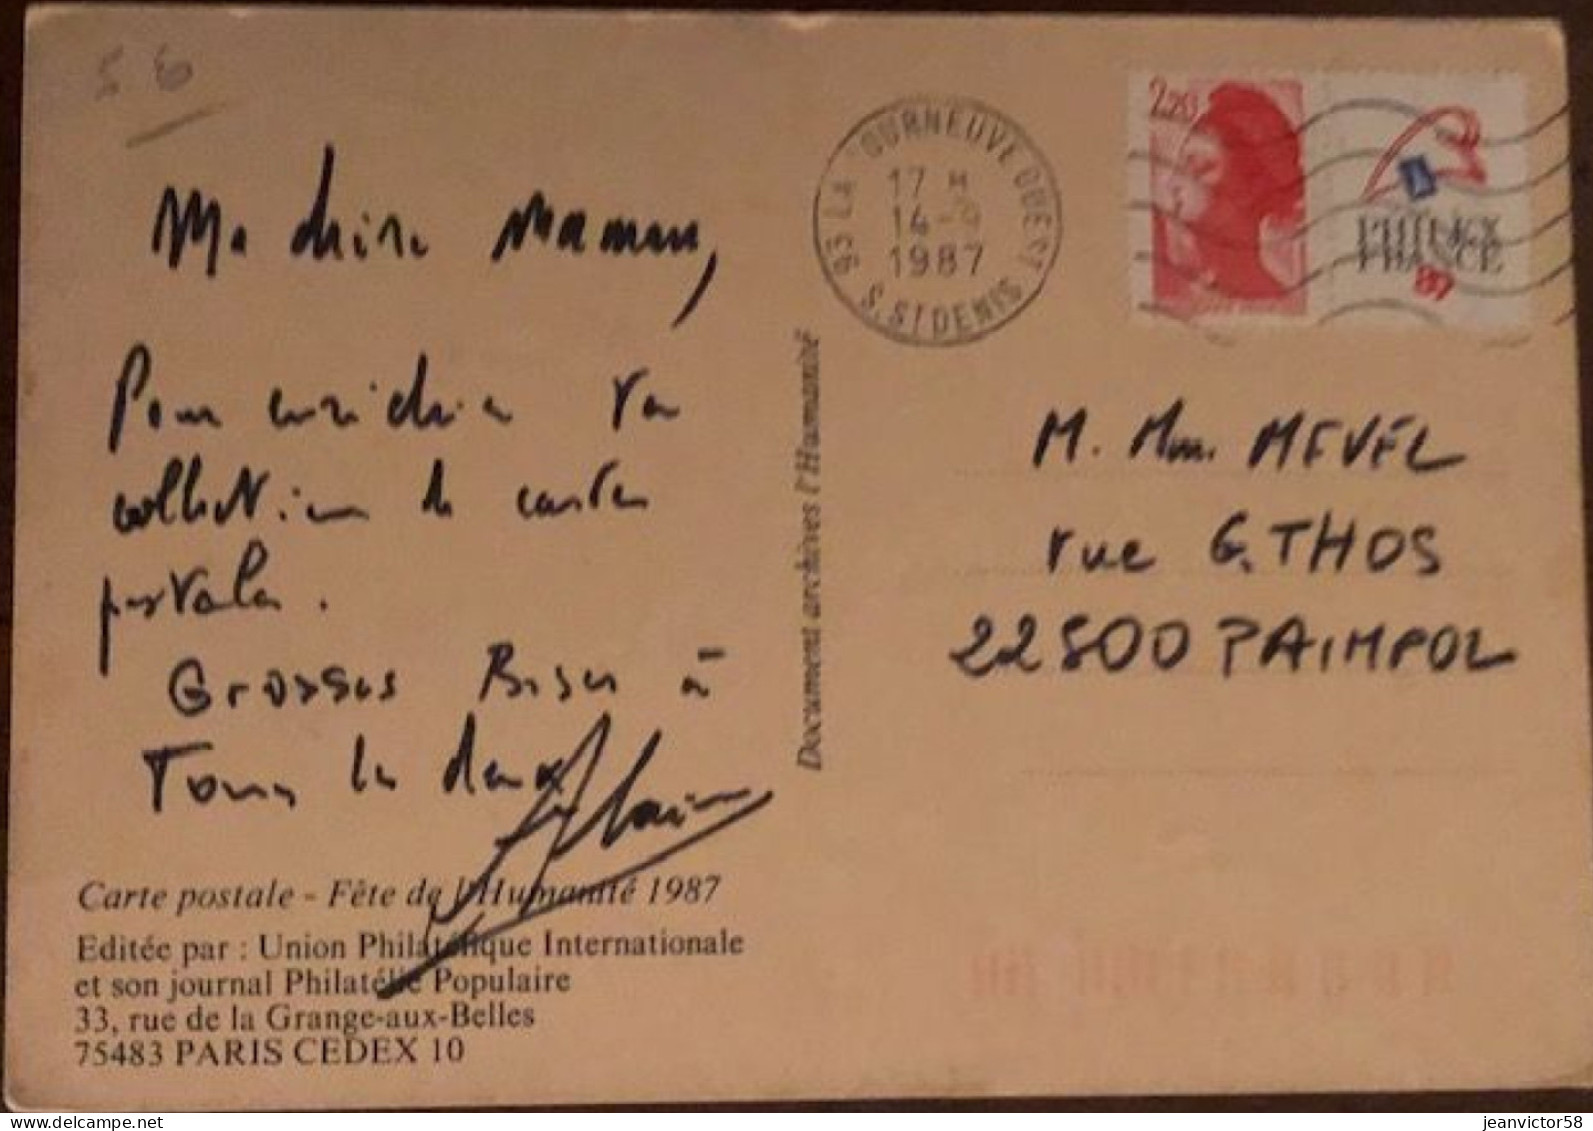 5 6
Ma chère Maman,
Pour enrichir ta
collection de cartes
postales.
Grosses Bises à
Tous les deux
Alain
Carte postale - Fête de l'Humanité 1987
Editée par : Union Philatélique Internationale
et son journal Philatélie Populaire
33, rue de la Grange-aux-Belles
75483 PARIS CEDEX 10
Document archives l'Humanité
93 LA COURNEUVE OUEST
17 H
14-9
1987
S. ST DENIS
2,20
PHILEX
FRANCE
89
M. Mme MEVEL
rue G. THOS
22500 PAIMPOL
www.delcampe.net
jeanvictor58